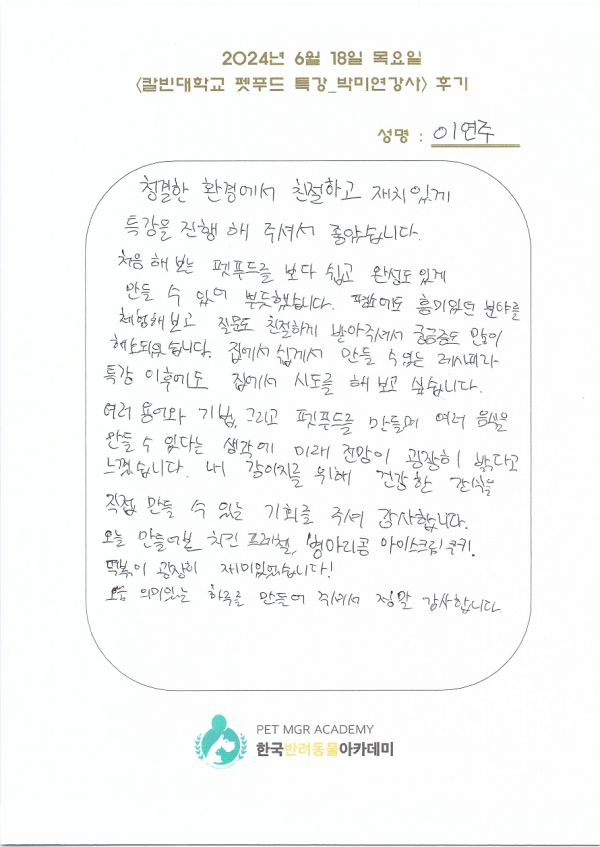 2024년 6월 18일 목요일
<칼빈대학교 펫푸드 특강_박미연강사> 후기
성명 : 이연주
청결한 환경에서 친절하고 재치있게
특강을 진행 해 주셔서 좋았습니다.
처음 해 보는 펫푸드를 보다 쉽고 완성도 있게
만들 수 있어 뿌듯했습니다. 평소에도 흥미있던 분야를
체험해보고 질문도 친절하게 받아주셔서 궁금증도 많이
해소되었습니다. 집에서 쉽게서 만들 수 있는 레시피라
특강 이후에도 집에서 시도를 해 보고 싶습니다.
여러 용어와 기법, 그리고 펫푸드를 만들며 여러 음식을
만들 수 있다는 생각에 미래 전망이 굉장히 밝다고
느꼈습니다. 내 강아지를 위해 건강한 간식을
직접 만들 수 있는 기회를 주셔 감사합니다.
오늘 만들어본 치킨 프레첼, 병아리콩 아이스크림 쿠키.
떡볶이 굉장히 재미있었습니다!
오늘 의미있는 하루를 만들어 주셔서 정말 감사합니다
PET MGR ACADEMY
한국반려동물아카데미